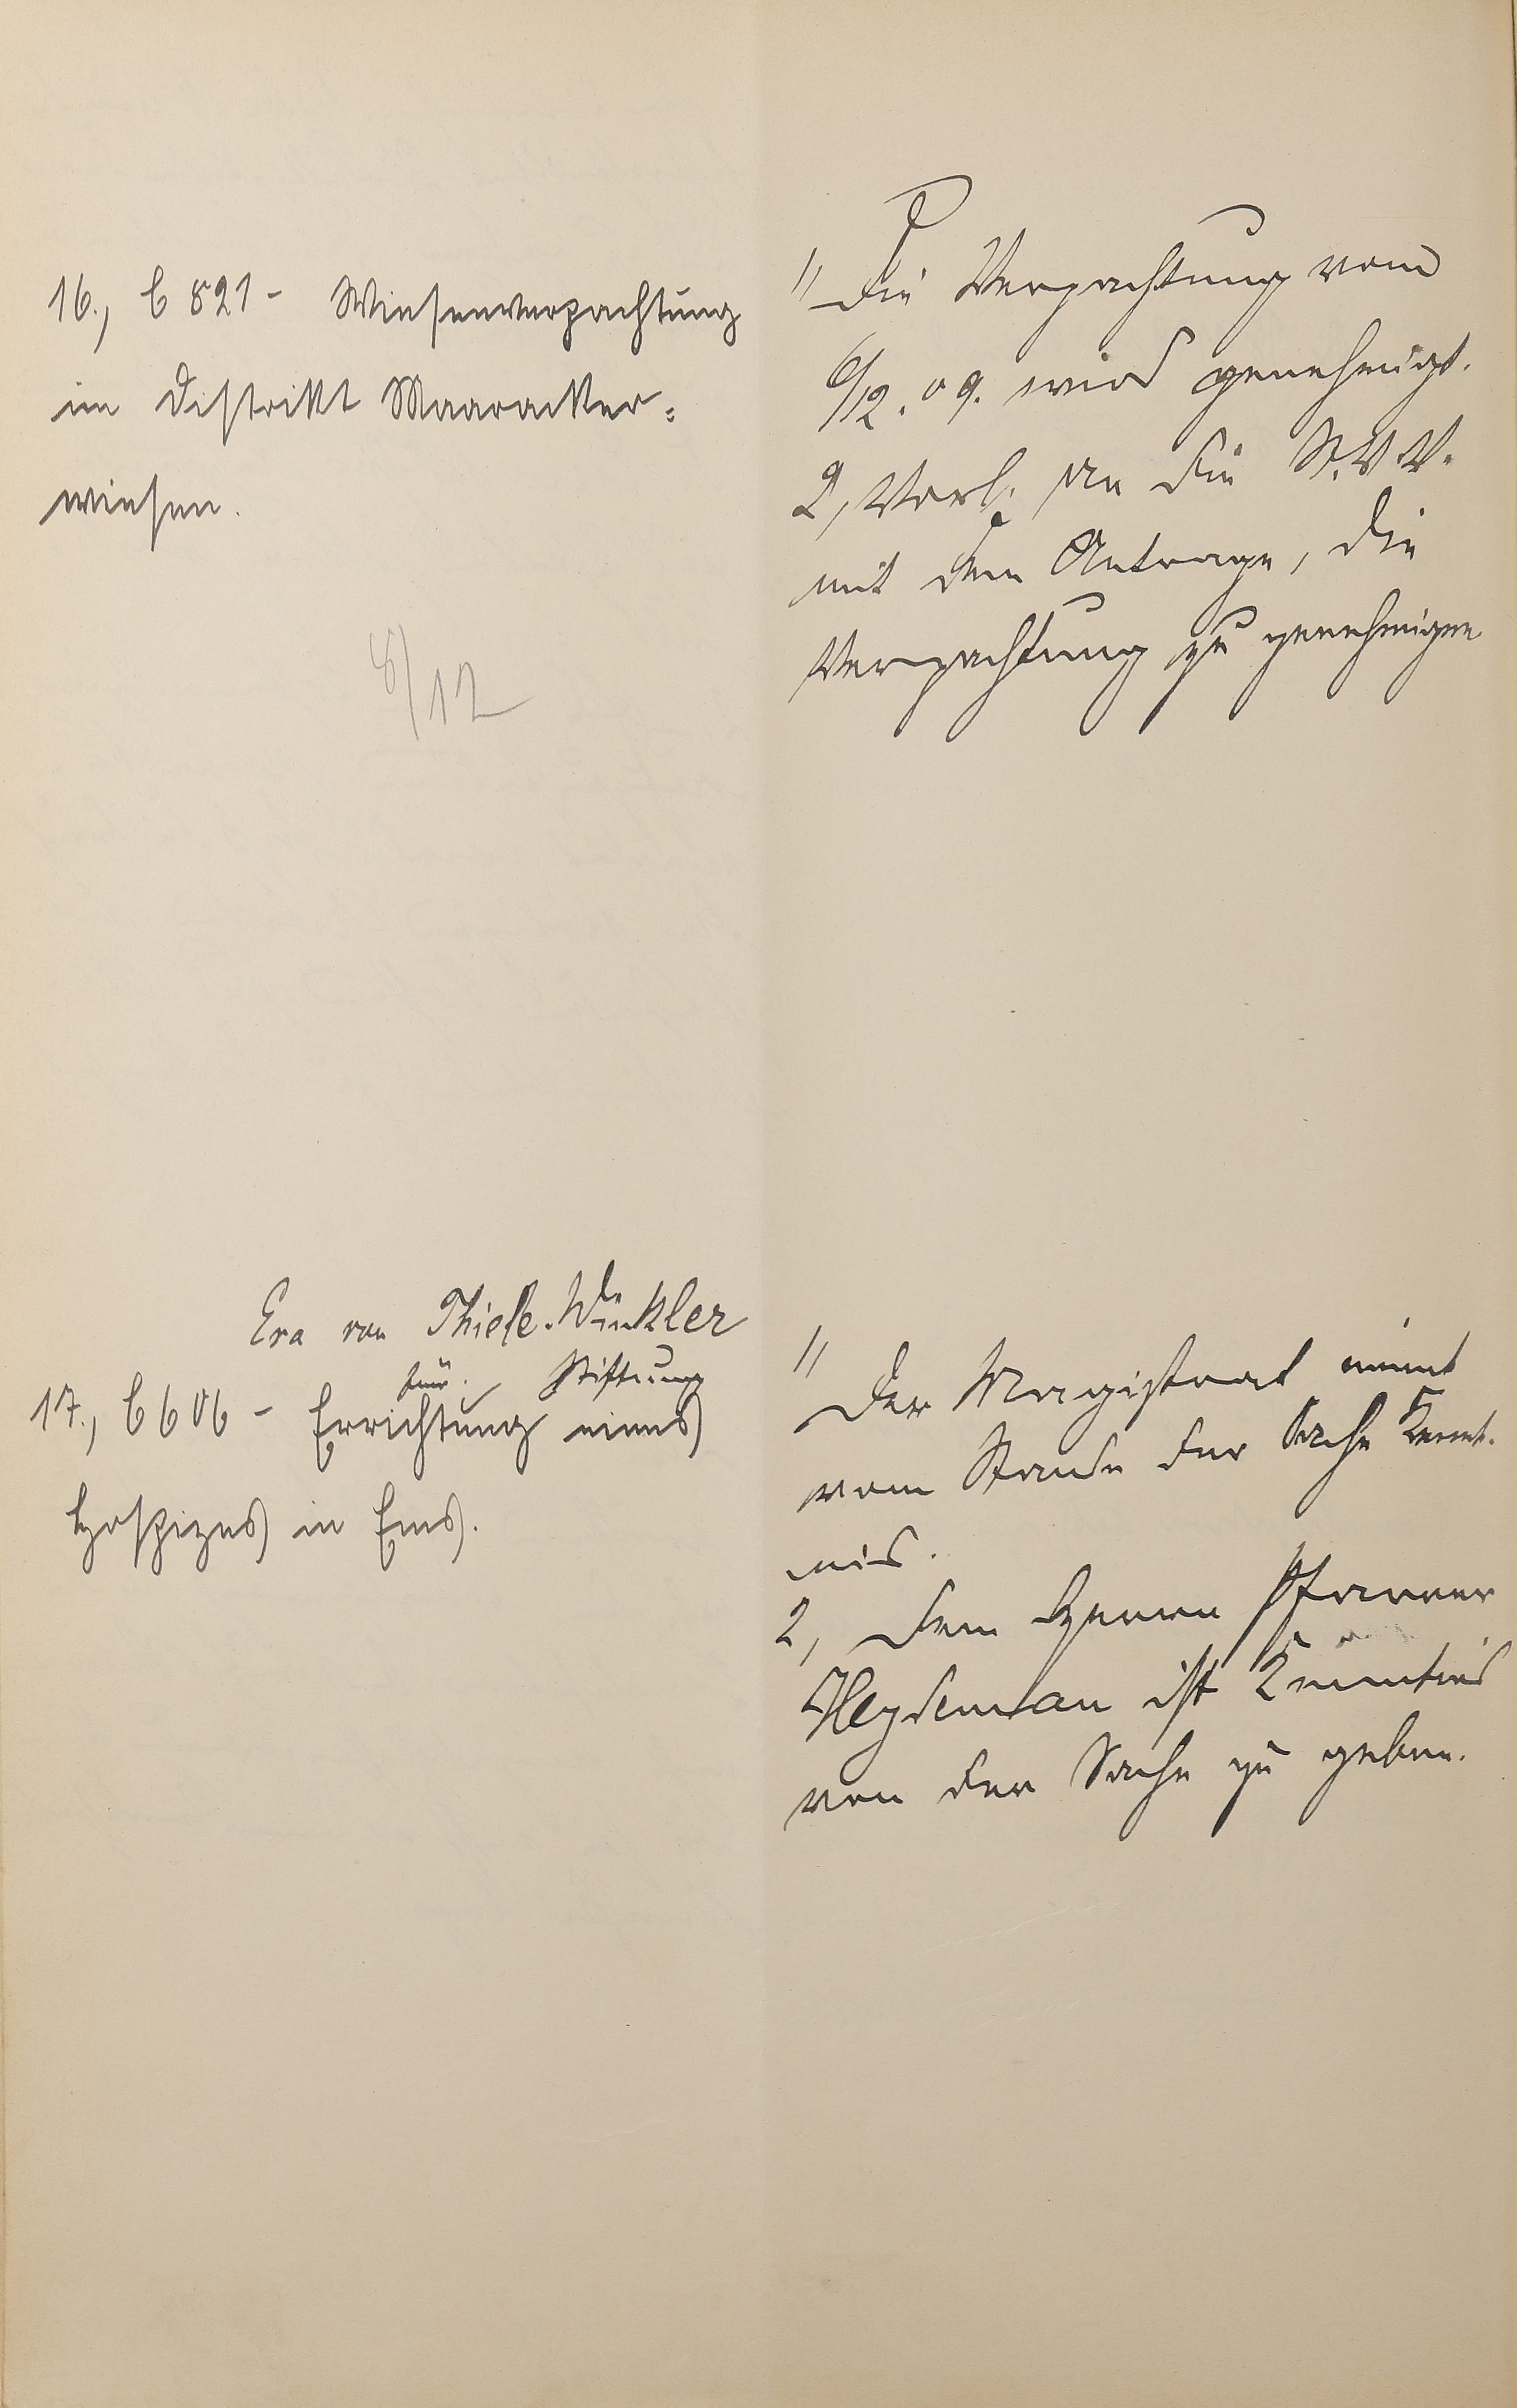 16., C 821 - Wiesenverpachtung
im Distrikt Maaracker=
wiesen.
8/12
1) Die Verpachtung vom
6/12. 09. wird genehmigt.
2, Vorl. an die St. V. V.
mit dem Antrage, die
Verpachtung zu genehmigen
Eva von Thiele-Winkler
Stiftung
17., C 606 - Errichtung eines
Hospizes in Ems.
1)
Der Magistrat nimmt
vom Stande der Sache Kennt-
nis.
2, Dem Herrn Pfarrer
Heydemann ist Kenntnis
von der Sache zu geben.